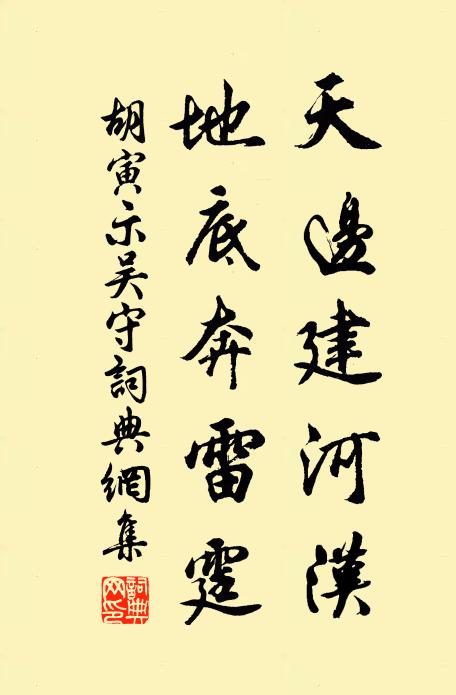 天邊建河漢
地底奔雷霆
胡寅示吴守詞典網集
詞典網印